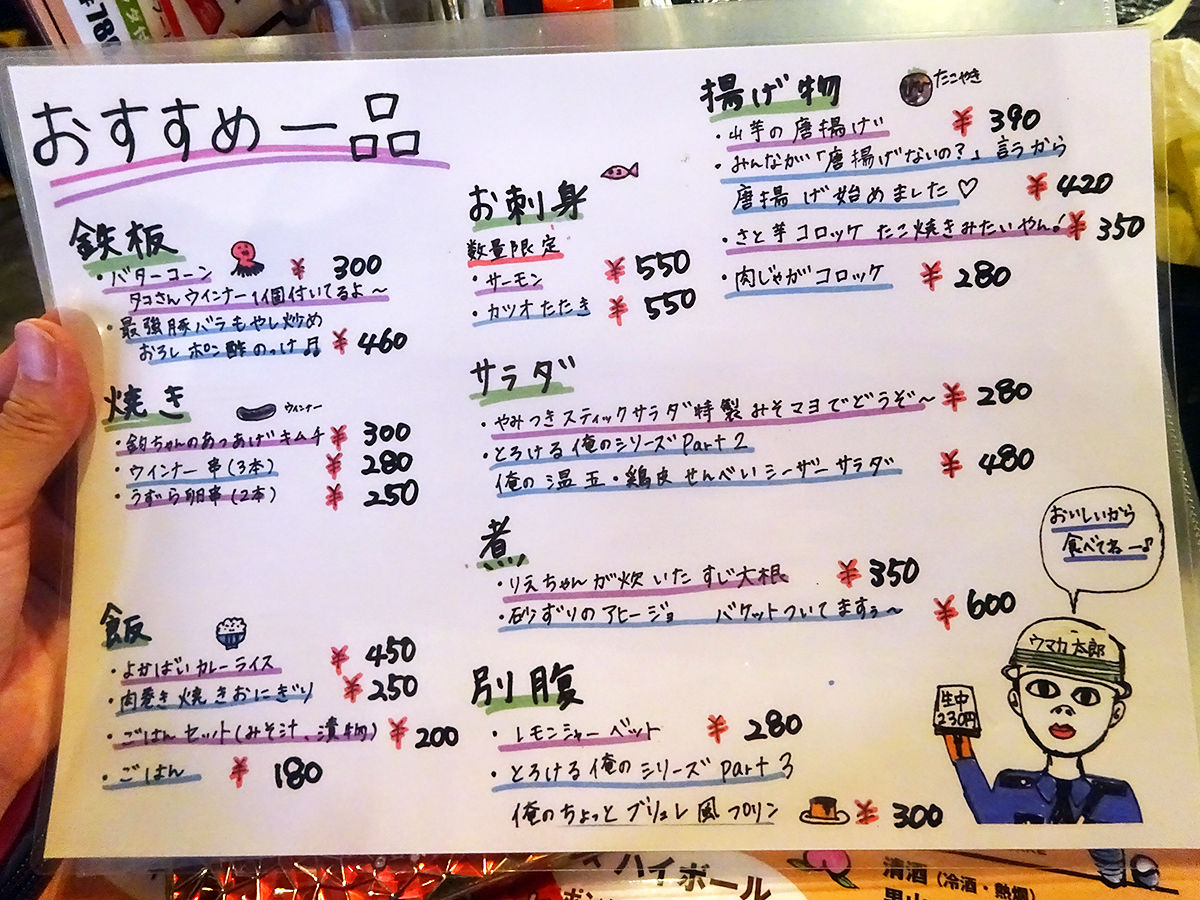 おすすめ一品
鉄板
・バターコーン ¥300
タコさんウインナー1個付いてるよ～
・最強豚バラもやし炒め
おろしポン酢のっけ♬ ¥460
焼き
ウィンナー
・鈞ちゃんのあつあげキムチ ¥300
・ウインナー串(3本) ¥280
・うずら卵串(2本) ¥250
飯
・よかばいカレーライス ¥450
・肉巻き焼きおにぎり ¥250
・ごはんセット(みそ汁、漬物) ¥200
・ごはん ¥180
お刺身
数量限定
・サーモン ¥550
・カツオたたき ¥550
サラダ
・やみつきスティックサラダ特製みそマヨでどうぞ～ ¥280
・とろける俺のシリーズPart2
俺の温玉・鶏皮せんべいシーザーサラダ ¥480
煮
・りえちゃんが炊いたすじ大根 ¥350
・砂ずりのアヒージョ バケットついてますぅ～ ¥600
別腹
・レモンシャーベット ¥280
・とろける俺のシリーズpart3
俺のちょっとブリュレ風プリン ¥300
揚げ物
たこやき
・山芋の唐揚げ ¥390
・みんなが「唐揚げないの?」言うから
唐揚げ始めました♡ ¥420
・さと芋コロッケたこ焼きみたいやん! ¥350
・肉じゃがコロッケ ¥280
おいしいから
食べてねー♪
ウマカ太郎
生中
230円
ハイボール
清酒(冷酒・熱燗)